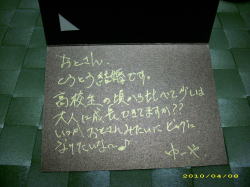 おとさん、
とうとう結婚です。
高校生の頃から比べて少しは
大人に成長できてますか??
いつか、おとさんみたいにビッグに
なりたいな〜♪
ゆーや
2010/04/08